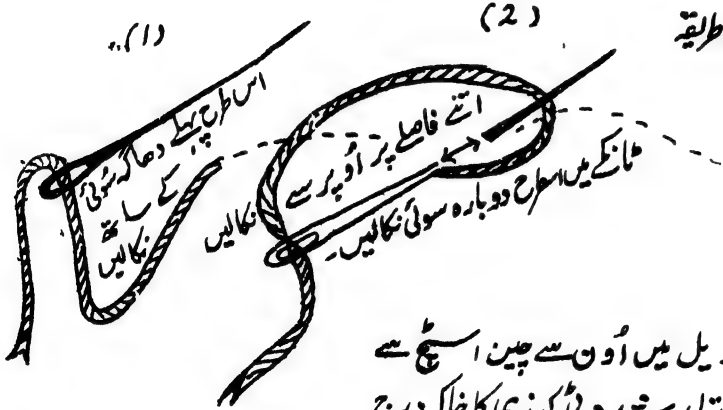 طریقہ
(1)
(2)
اس طرح پہلے دھاگہ سُوئی
کے ساتھ
نکالیں
اتنے فاصلے پر اُوپر سے نکالیں
ٹانکے میں اسطرح دوبارہ سوئی نکالیں۔
یل میں اُون سے چین اسٹچ سے
کا خاکہ درج